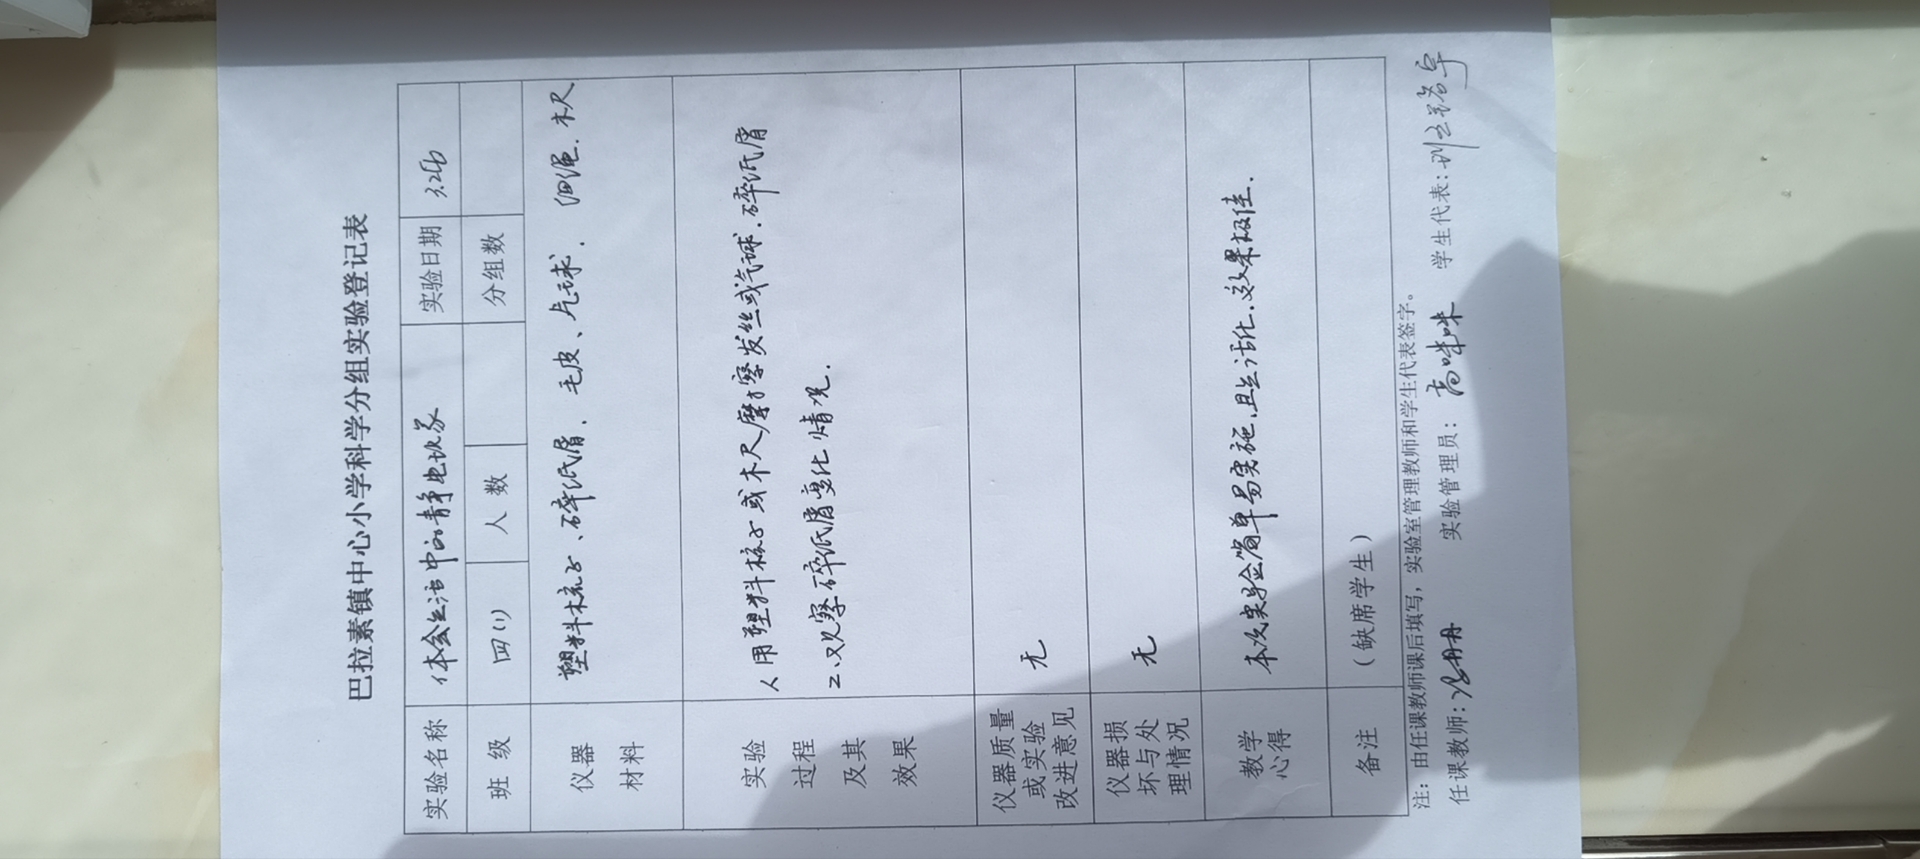 巴拉素镇中心小学科学分组实验登记表
实验名称 体会生活中的静电现象 实验日期 3.26
班 级 四(1) 人 数 分组数
仪器材料 塑料梳子、碎纸屑、毛皮、气球、细绳、木尺
实验过程及其效果
1、用塑料梳子或木尺摩擦发丝或气球、碎纸屑
2、观察碎纸屑变化情况.
仪器质量或实验改进意见 无
仪器损坏与处理情况 无
教学心得 本次实验简单易实施,且生活化,效果极佳.
备注 (缺席学生)
注:由任课教师课后填写,实验室管理教师和学生代表签字。
任课教师: 实验管理员:高咪咪 学生代表: